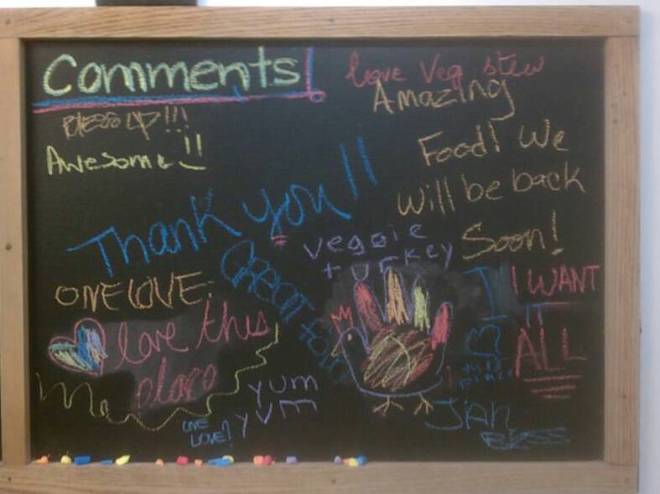 Comments!
love Veg stew
Amazing
Food! We
will be back
Soon!
BLESS UP!!!
Awesome!!
Thank you!!
veggie
turkey
Great food
ONE LOVE:
love this
place
I WANT
IT
ALL
I
this
place
yum
yum
ONE
LOVE!
Jian
BLESS